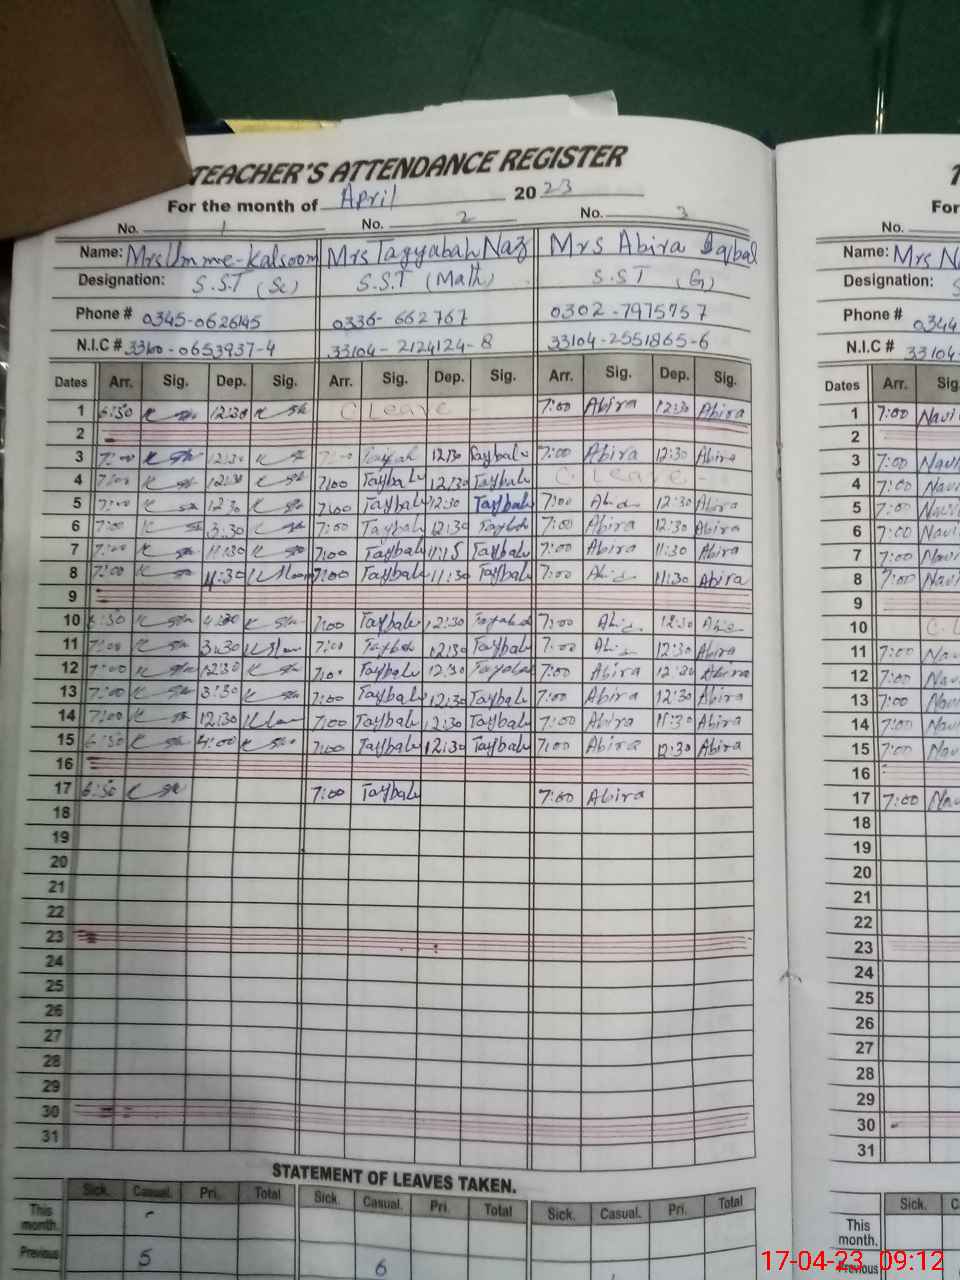 TEACHER'S ATTENDANCE REGISTER
For the month of April 2023
No. 1 No. 2 No. 3
Name: Mrs Umme-Kalsoom Mrs Tayyabah Naz Mrs Abira Iqbal
Designation: S.S.T (Sc) S.S.T (Math) S.S.T (G)
Phone # 0345-0626145 0336-662767 0302-7975757
N.I.C # 33100-0653937-4 33104-2124124-8 33104-2551865-6
Dates Arr. Sig. Dep. Sig. Arr. Sig. Dep. Sig. Arr. Sig. Dep. Sig.
1 6:30 12:30 C.Leave - 7:00 Abira 12:30 Abira
2
3 7:00 12:30 7:00 Taybah 12:30 Taybah 7:00 Abira 12:30 Abira
4 7:00 12:30 7:00 Taybah 12:30 Taybah C.Leave -
5 7:00 12:30 7:00 Taybah 12:30 Taybah 7:00 Abira 12:30 Abira
6 7:00 3:30 7:00 Taybah 12:30 Taybah 7:00 Abira 12:30 Abira
7 7:00 11:30 7:00 Taybah 11:15 Taybah 7:00 Abira 11:30 Abira
8 7:00 11:30 7:00 Taybah 11:30 Taybah 7:00 Abira 11:30 Abira
9
10 6:30 4:30 7:00 Taybah 12:30 Taybah 7:00 Abira 12:30 Abira
11 7:00 3:30 7:00 Taybah 12:30 Taybah 7:00 Abira 12:30 Abira
12 7:00 12:30 7:00 Taybah 12:30 Tayabah 7:00 Abira 12:30 Abira
13 7:00 3:30 7:00 Taybah 12:30 Taybah 7:00 Abira 12:30 Abira
14 7:00 12:30 7:00 Taybah 12:30 Taybah 7:00 Abira 11:30 Abira
15 6:30 4:00 7:00 Taybah 12:30 Taybah 7:00 Abira 12:30 Abira
16
17 6:30 7:00 Taybah 7:00 Abira
18
19
20
21
22
23
24
25
26
27
28
29
30
31
STATEMENT OF LEAVES TAKEN.
Sick. Casual. Pri. Total Sick. Casual. Pri. Total Sick. Casual. Pri. Total
This month. -
Previous 5 6
For
No.
Name: Mrs N
Designation: S
Phone # 0344
N.I.C # 33104-
Dates Arr. Sig
1 7:00 Navi
2
3 7:00 Navi
4 7:00 Navi
5 7:00 Navi
6 7:00 Navi
7 7:00 Navi
8 7:00 Navi
9
10 C.L
11 7:00 Nav
12 7:00 Nav
13 7:00 Nav
14 7:00 Nav
15 7:00 Nav
16
17 7:00 Nav
18
19
20
21
22
23
24
25
26
27
28
29
30
31
Sick. C
This month.
Previous
17-04-23 09:12